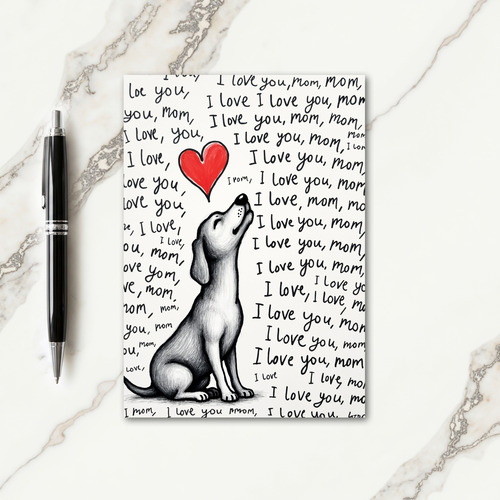 I love you, mom, mom,
loe you,
I love I love you, mom
you, mom,
I love you, mom, mom,
I love, you,
I love you, mom, mom
I love,
I love you, mom,
I mom,
I love you, mom
love you,
I love you, mom
love you,
I love you, mom,
, I love,
I love you, mom,
I love,
I love you, mom,
ou, mom,
I love you, mom,
ove yom,
I love yo
ve, mom,
I love, I love, mo
mom, mom
I love you, mom
you, mom
I love you, mom
ou, mom
I love you, mom
Love,
I love
I love, mom
I love you, mom
I mom,
I love you mmom,
I love you,